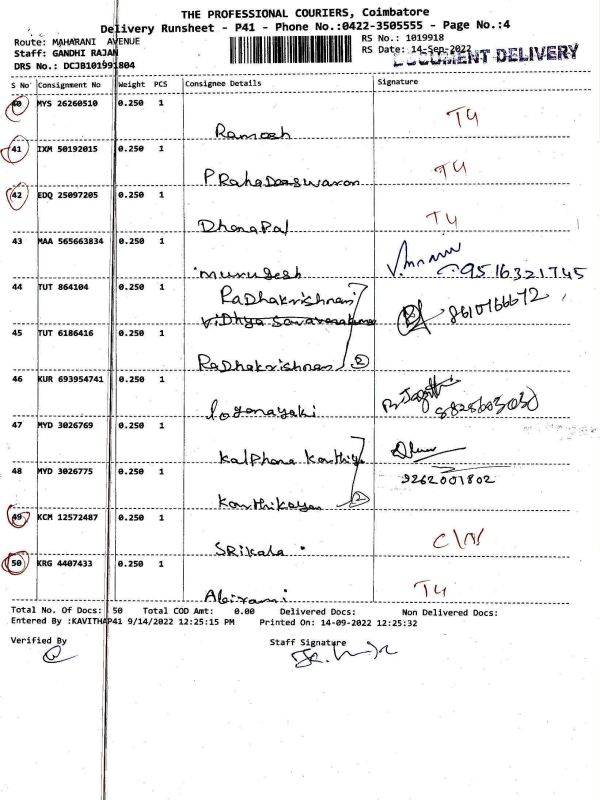 THE PROFESSIONAL COURIERS, Coimbatore
Delivery Runsheet - P41 - Phone No.:0422-3505555 - Page No.:4
Route: MAHARANI AVENUE RS No.: 1019918
Staff: GANDHI RAJAN RS Date: 14-Sep-2022
DOCUMENT DELIVERY
DRS No.: DCJB101991804
S No Consignment No Weight PCS Consignee Details Signature
40 MYS 26260510 0.250 1
Ramesh T4
41 IXM 50192015 0.250 1
T4
42 EDQ 25097205 0.250 1
DhanaPal T4
43 MAA 565663834 0.250 1
murugesh 9516321745
44 TUT 864104 0.250 1
RaDhakrishnan
8610166672
45 TUT 6186416 0.250 1
RaDhakrishnan 2
46 KUR 693954741 0.250 1
loganayaki
47 MYD 3026769 0.250 1
Kalphana Karthiga
48 MYD 3026775 0.250 1
9262001802
Karthikayan 2
49 KCM 12572487 0.250 1
SRikala
50 KRG 4407433 0.250 1
Abirami T4
Total No. Of Docs: 50 Total COD Amt: 0.00 Delivered Docs: Non Delivered Docs:
Entered By :KAVITHAP41 9/14/2022 12:25:15 PM Printed On: 14-09-2022 12:25:32
Verified By Staff Signature